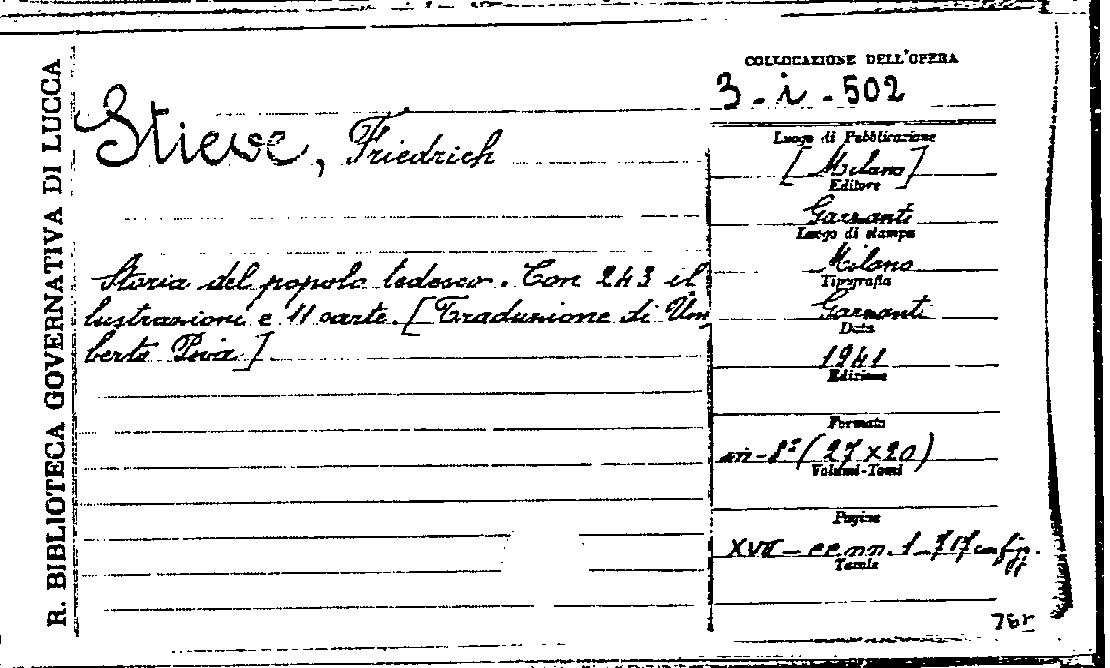 R. BIBLIOTECA GOVERNATIVA DI LUCCA
Stieve, Friedrich
Storia del popolo tedesco. Con 243 il
lustrazioni e 11 carte. [Traduzione di Um
berto
COLLOCAZIONE DELL'OPERA
3-i-502
Luogo di Pubblicazione
[Milano]
Editore
Garzanti
Luogo di stampa
Milano
Tipografia
Garzanti
Data
1941
Edizione
Formato
in-8º (27x20)
Volumi-Tomi
Pagine
XVII-cc.nn. 1-717 con fig.
Tavole